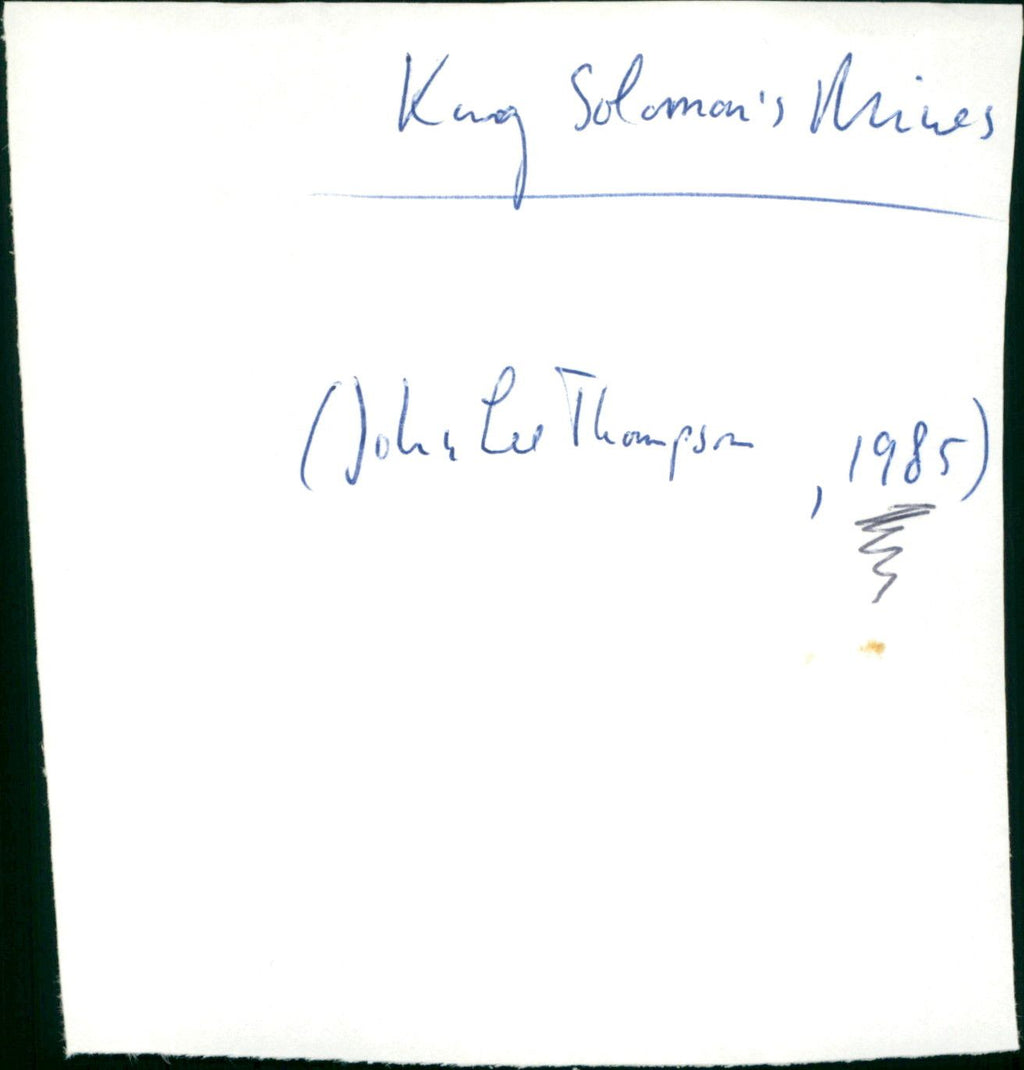 King Solomon's Mines
(John Lee Thompson, 1985)